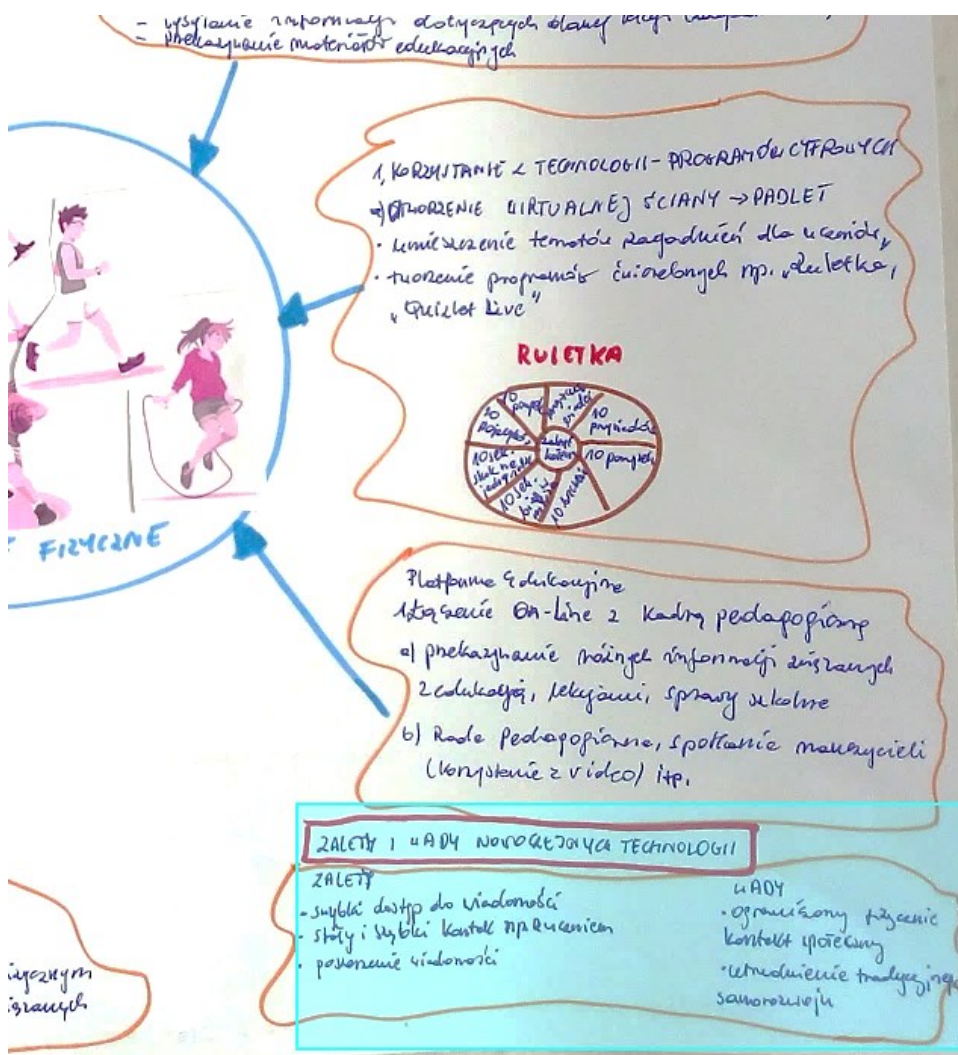 - wysyłanie informacji dotyczących danej lekcji
- przekazywanie materiałów edukacyjnych
1, KORZYSTANIE Z TECHNOLOGII - PROGRAMÓW CYFROWYCH
a) OTWORZENIE WIRTUALNEJ ŚCIANY → PADLET
· umieszczenie tematów zagadnień dla uczniów,
· tworzenie programów ćwiczebnych np. „Ruletka,
„Quizlet Live"
RULETKA
10 przysiadów
10 pompek
10 sek.
skok na
10 sek.
FIZYCZNE
Platforma Edukacyjna
1. Łączenie On-Line z kadrą pedagogiczną
a) przekazywanie różnych informacji związanych
z edukacją, lekcjami, sprawy szkolne
b) Rada Pedagogiczna, spotkanie nauczycieli
(korzystanie z video) itp.
ZALETY I WADY NOWOCZESNYCH TECHNOLOGII
ZALETY
- szybki dostęp do wiadomości
- stały i szybki kontakt np. z uczniem
· poszerzenie wiadomości
WADY
· ograniczony
kontakt społeczny
· utrudnienie tradycyjnego
samorozwoju
izycznym
iązanych